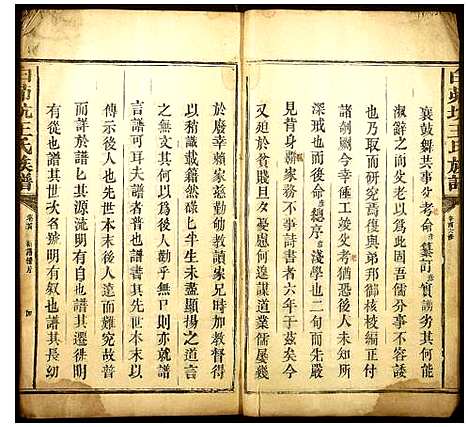 襄鼓舞共事分考俞纂訂質謭劣其何能
淑辭之而交考老以為此固吾儒分事不容諉
也乃取而次第焉復與弟邦御核校編正付
諸剞劂今幸倕工竣交考猶恐後人未知所
深戒也而後命總序淺學也二旬而先嚴
見背身不事詩書者六年于兹矣今
又迫於貧賤旦夕憂惠何遑謀道業儒屢幾
於廢幸賴家慈勤勉家兄時加教督得
以稍識載籍然碌碌半生未盡顯揚之道言
之無文其何以為後人勸乎無已則亦就譜
言譜可耳夫譜者普也譜其先世本末以
傳示後人也先世本末年遠而難究故普
而詳於譜其源流明有自也譜其遷徙明
有從也譜其世次名號明有叙也譜其長幼
白茆坑王氏族譜
白茆坑王氏族譜